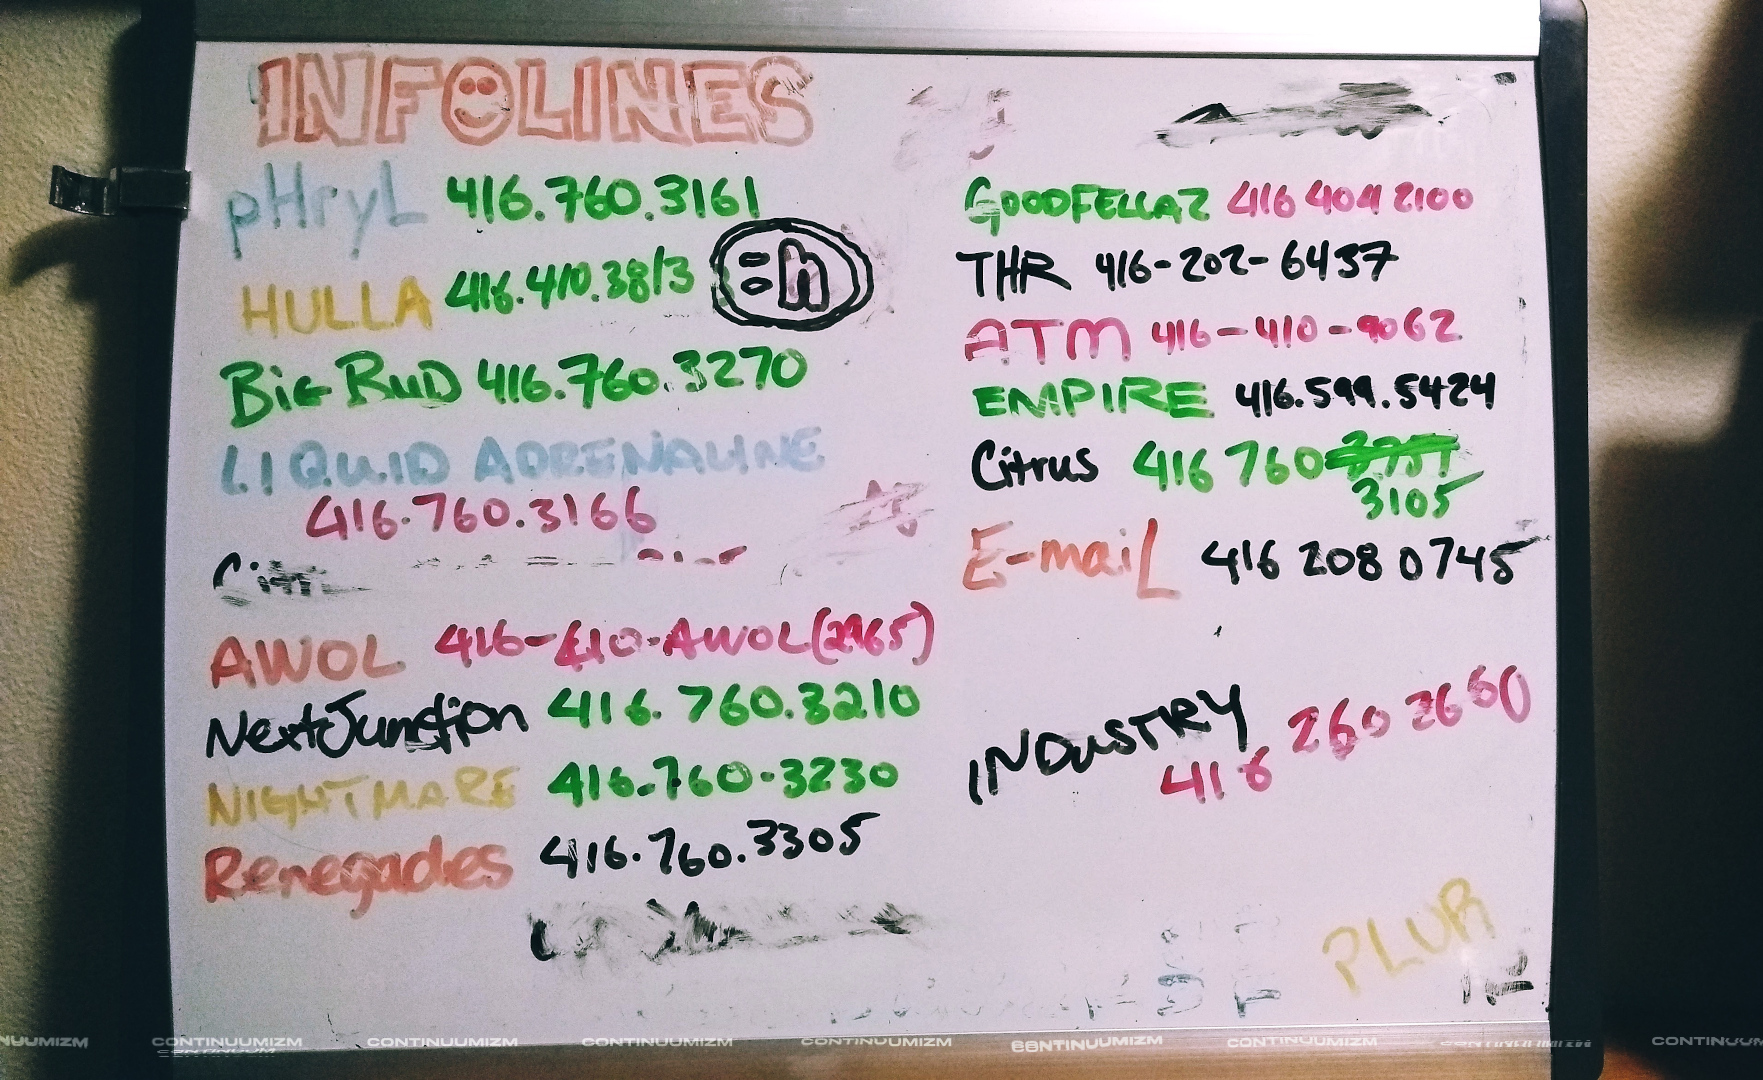 INFOLINES
pHryL 416.760.3161
HULLA 416.410.3813 :h
BiG BuD 416.760.3270
LIQUID ADRENALINE
416.760.3166
AWOL 416-410-AWOL(2965)
Next Junction 416.760.3210
NIGHTMARE 416.760.3230
Renegades 416.760.3305
GOODFELLAZ 416 404 2100
THR 416-202-6437
ATM 416-410-9062
EMPIRE 416.599.5424
Citrus 416 760
3105
E-maiL 416 208 0745
INDUSTRY
416 260 2660
PLUR
CONTINUUMIZM CONTINUUMIZM CONTINUUMIZM CONTINUUMIZM CONTINUUMIZM CONTINUUMIZM